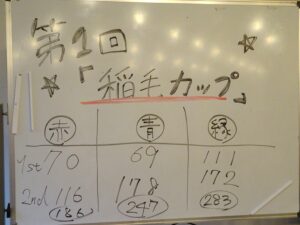 第1回
「稲毛カップ」
赤 青 緑
1st 70 69 111
2nd 116 178 172
186 247 283